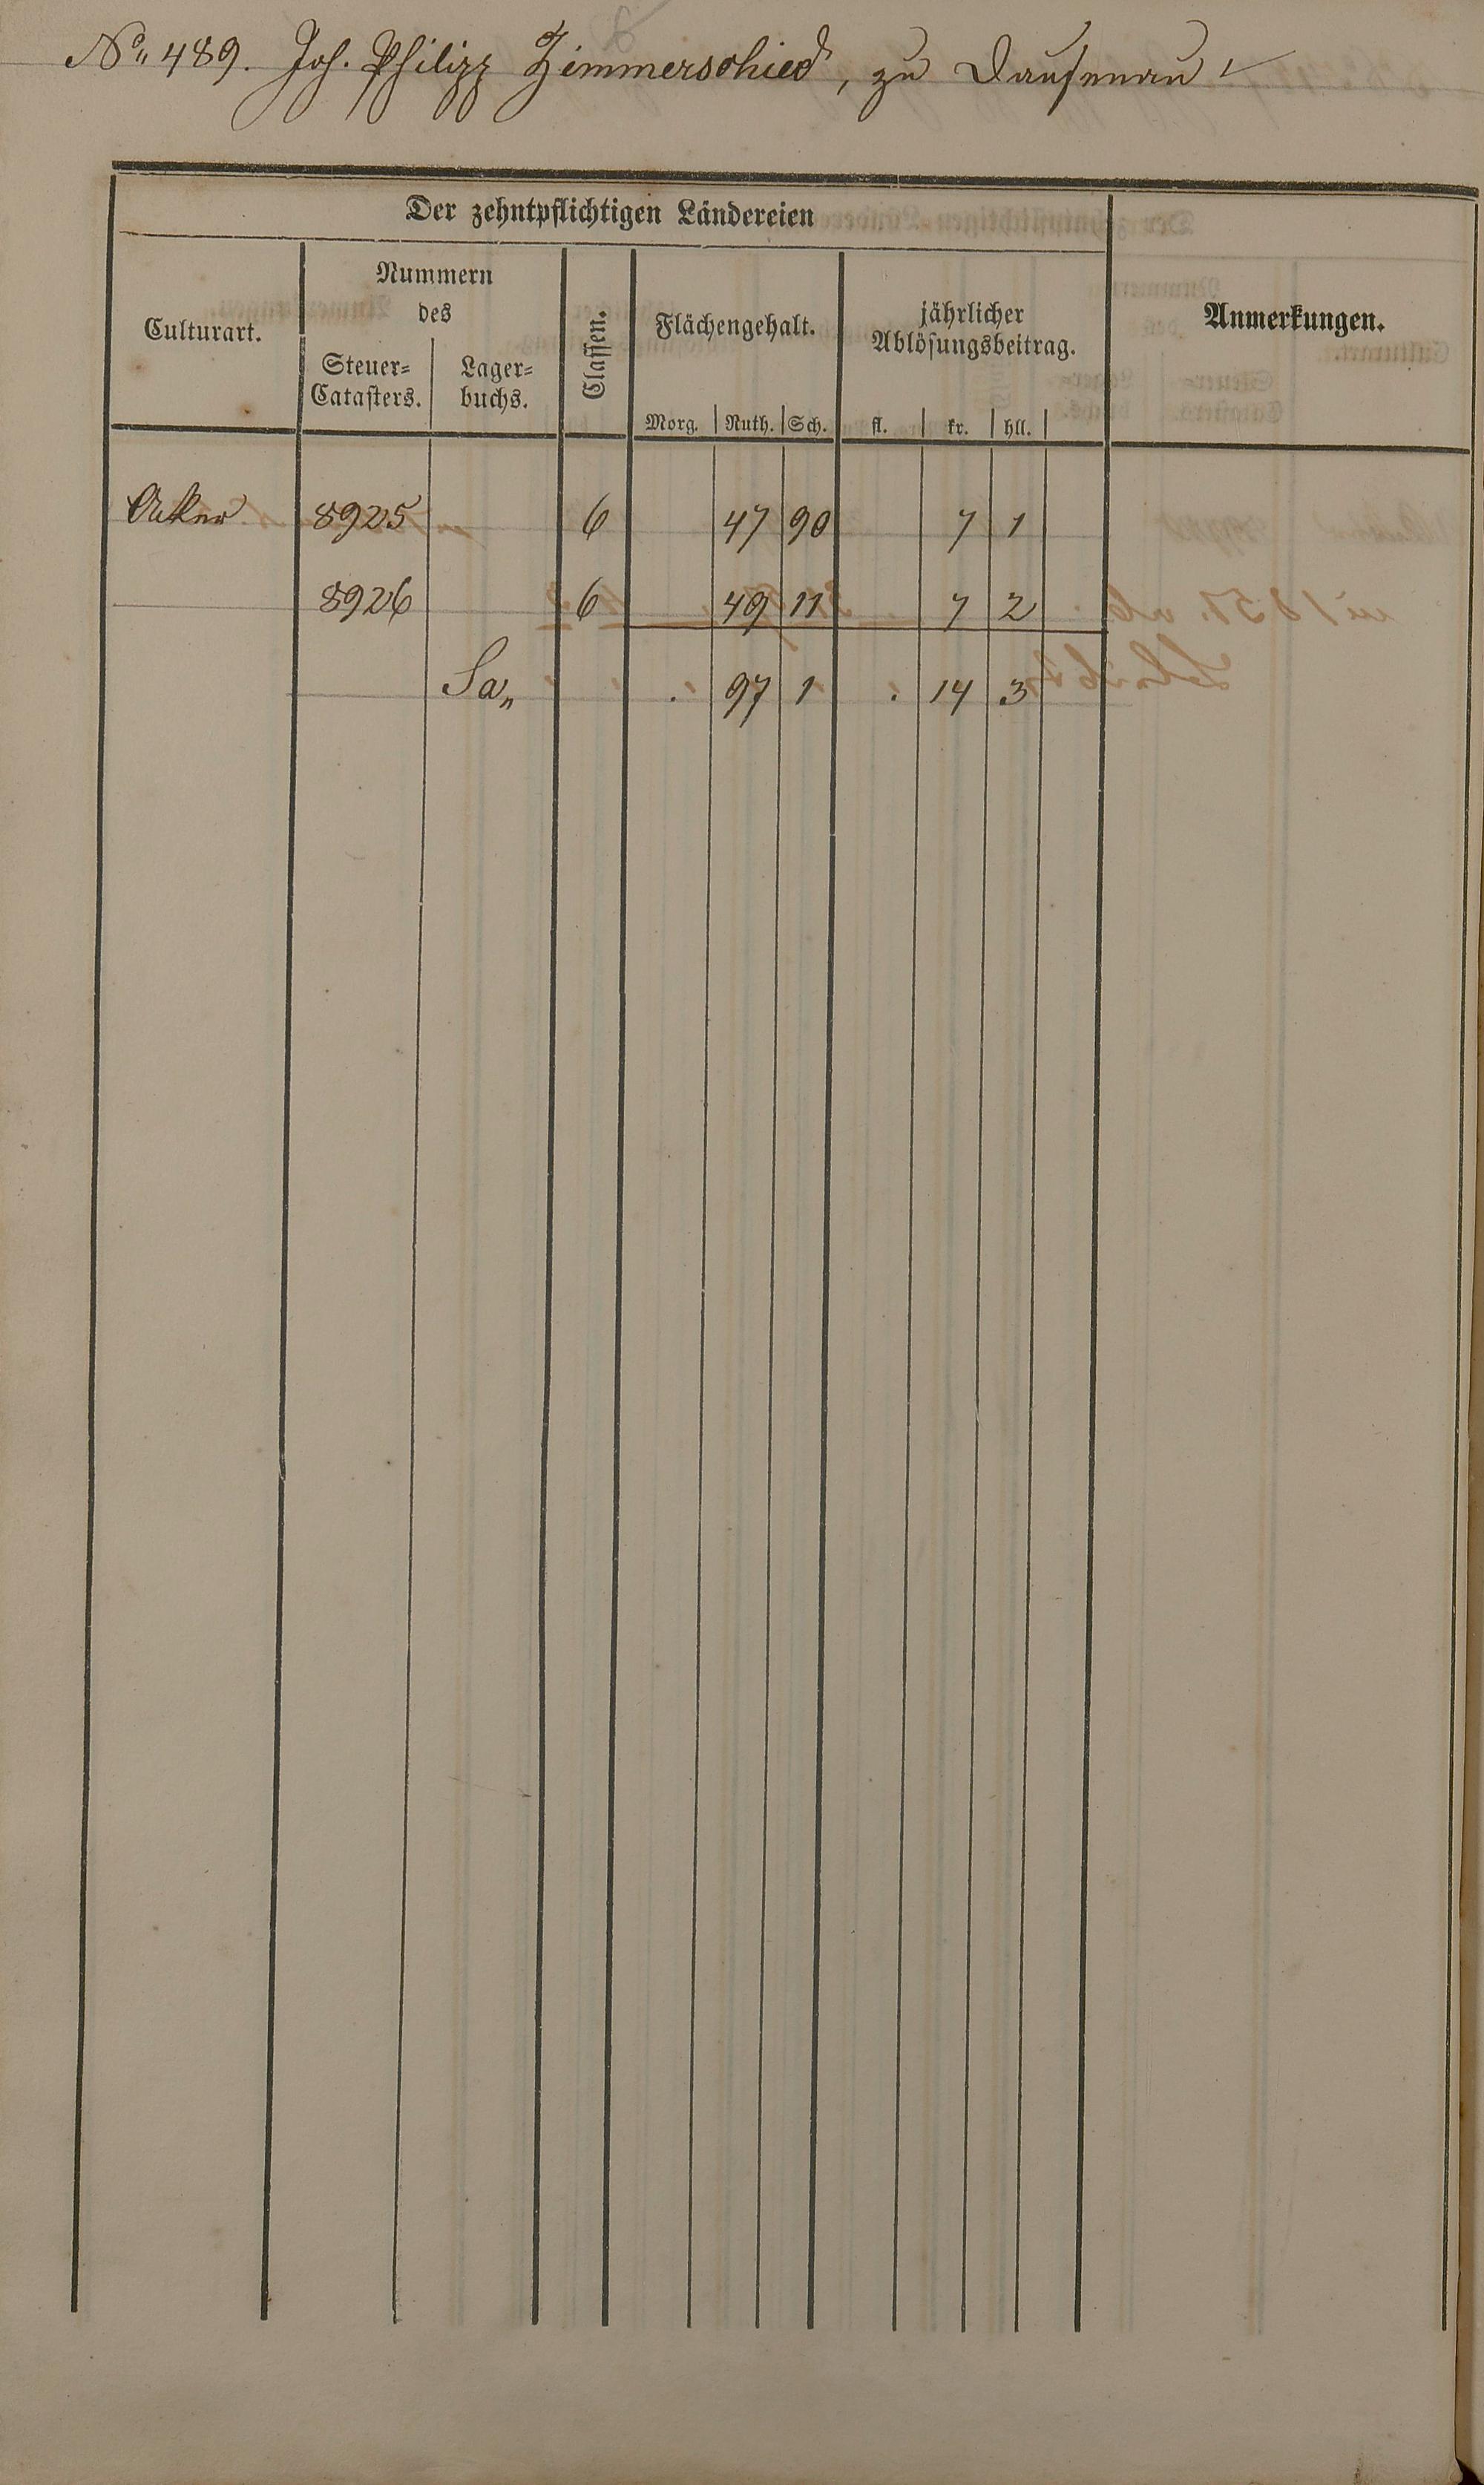 No. 489. Joh. Philipp Zimmerschied, zu Dausenau
Der zehntpflichtigen Ländereien
Culturart.
Nummern
des
Steuer-
Catasters.
Lager-
buchs.
Classen.
Flächengehalt.
Morg. Ruth. Sch.
jährlicher
Ablösungsbeitrag.
fl. kr. hll.
Anmerkungen.
Acker 8925 6 47 90 7 1
8926 6 49 11 7 2
Sa,, . 97 1 . 14 3